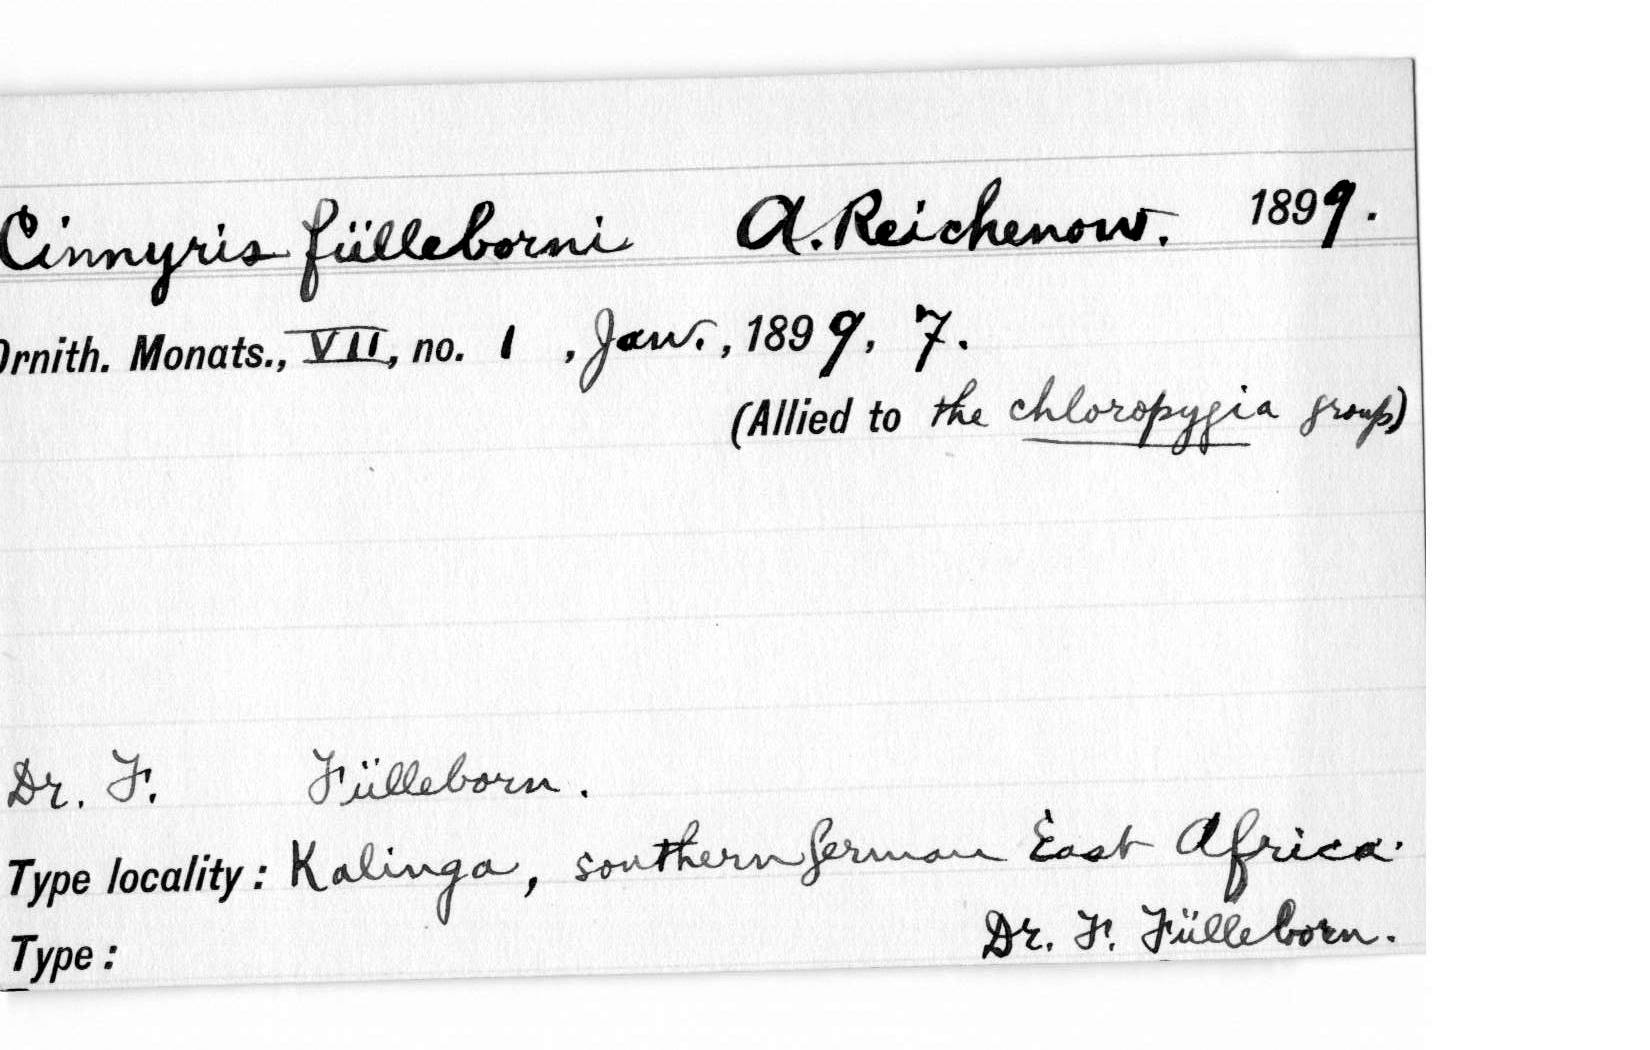 Cinnyris fülleborni A. Reichenow. 1899.
Ornith. Monats., VII, no. 1, Jan., 1899, 7.
(Allied to the chloropygia group)
Dr. F. Fülleborn.
Type locality: Kalinga, southern German East Africa.
Type: Dr. F. Fülleborn.